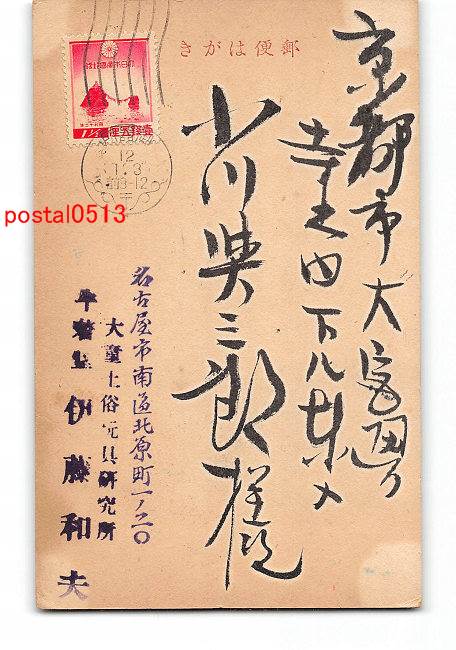 郵便はがき
大日本帝国郵便
1½
12
1.3
京都市大宮通
寺之内下ル東入
小川與三郎様
名古屋市南区北原町一ノ二〇
大童土俗玩具研究所
伊藤和夫
postal0513